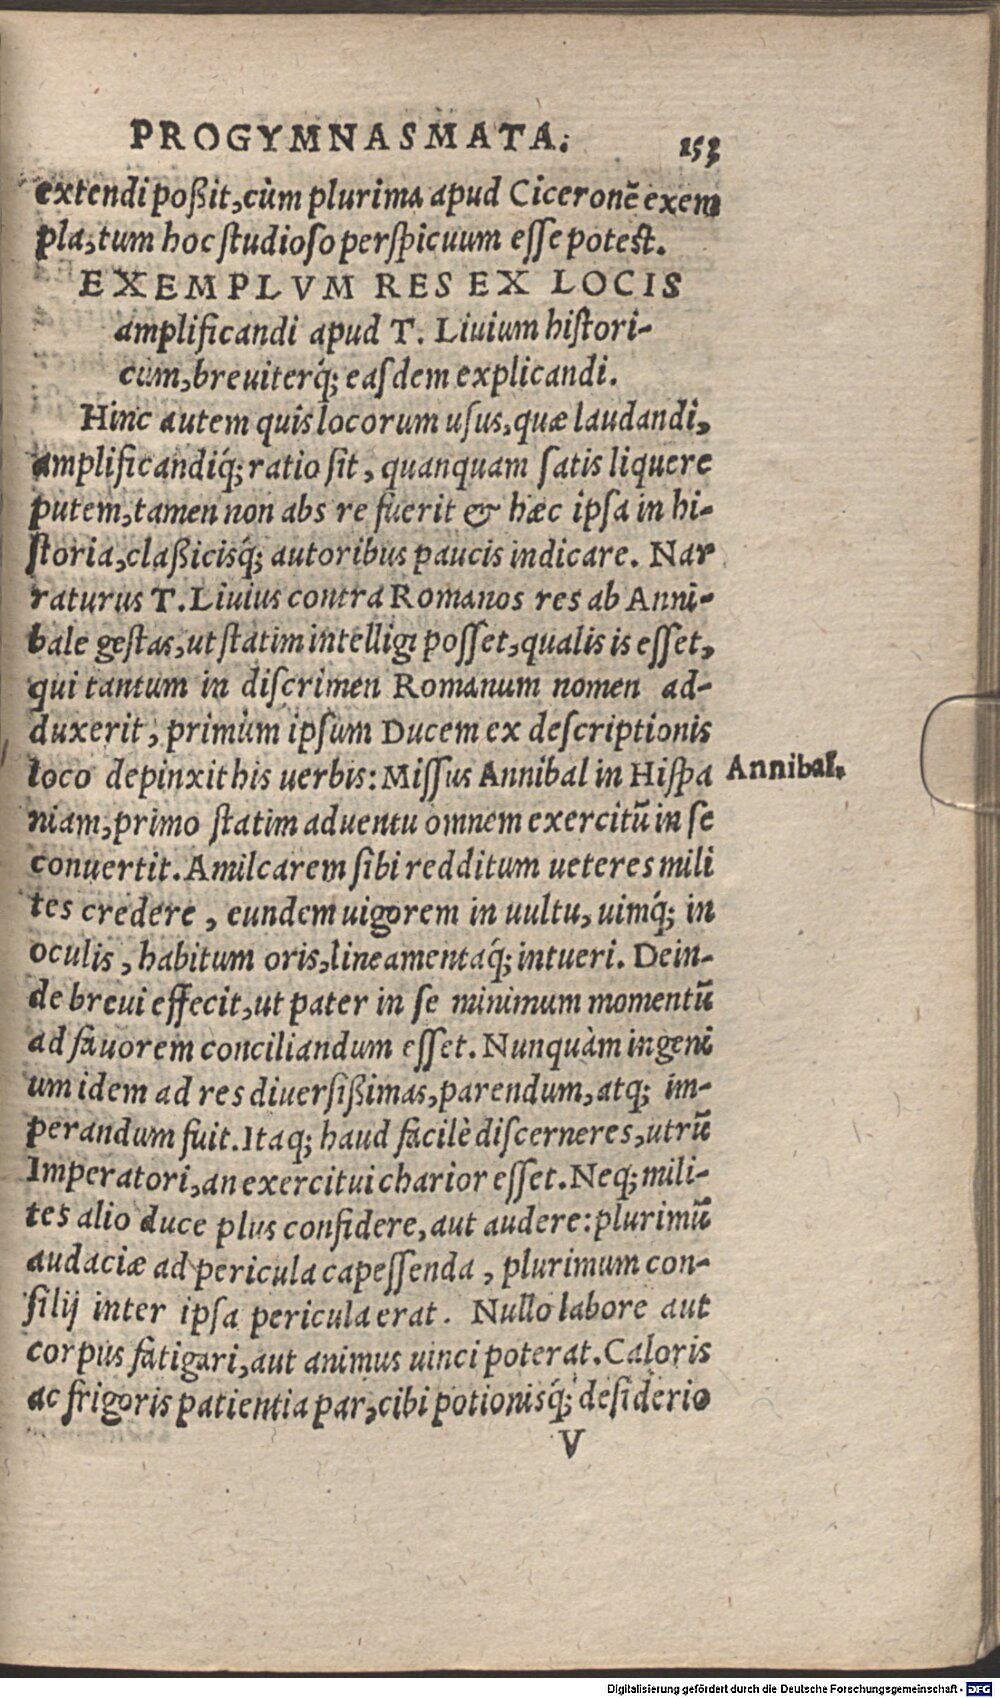 PROGYMNASMATA. 153
extendi poßit, cùm plurima apud Ciceronē exem
pla, tum hoc studioso perspicuum esse potest.
EXEMPLVM RES EX LOCIS
amplificandi apud T. Liuium histori-
cum, breuiterq́; easdem explicandi.
Hinc autem quis locorum usus, quæ laudandi,
amplificandiq́; ratio sit, quanquam satis liquere
putem, tamen non abs re fuerit & hæc ipsa in hi-
storia, claßicisq́; autoribus paucis indicare. Nar
raturus T. Liuius contra Romanos res ab Anni-
bale gestas, ut statim intelligi posset, qualis is esset,
qui tantum in discrimen Romanum nomen ad-
duxerit, primùm ipsum Ducem ex descriptionis
loco depinxit his uerbis: Missus Annibal in Hispa
Annibal.
niam, primo statim aduentu omnem exercitū in se
conuertit. Amilcarem sibi redditum ueteres mili
tes credere, eundem uigorem in uultu, uimq́; in
oculis, habitum oris, lineamentaq́; intueri. Dein-
de breui effecit, ut pater in se minimum momentū
ad fauorem conciliandum esset. Nunquàm ingeni
um idem ad res diuersißimas, parendum, atq; im-
perandum fuit. Itaq; haud facilè discerneres, utrū
Imperatori, an exercitui charior esset. Neq; mili-
tes alio duce plus confidere, aut audere: plurimū
audaciæ ad pericula capessenda, plurimum con-
silij inter ipsa pericula erat. Nullo labore aut
corpus fatigari, aut animus uinci poterat. Caloris
ac frigoris patientia par, cibi potionisq́; desiderio
V
Digitalisierung gefördert durch die Deutsche Forschungsgemeinschaft - DFG